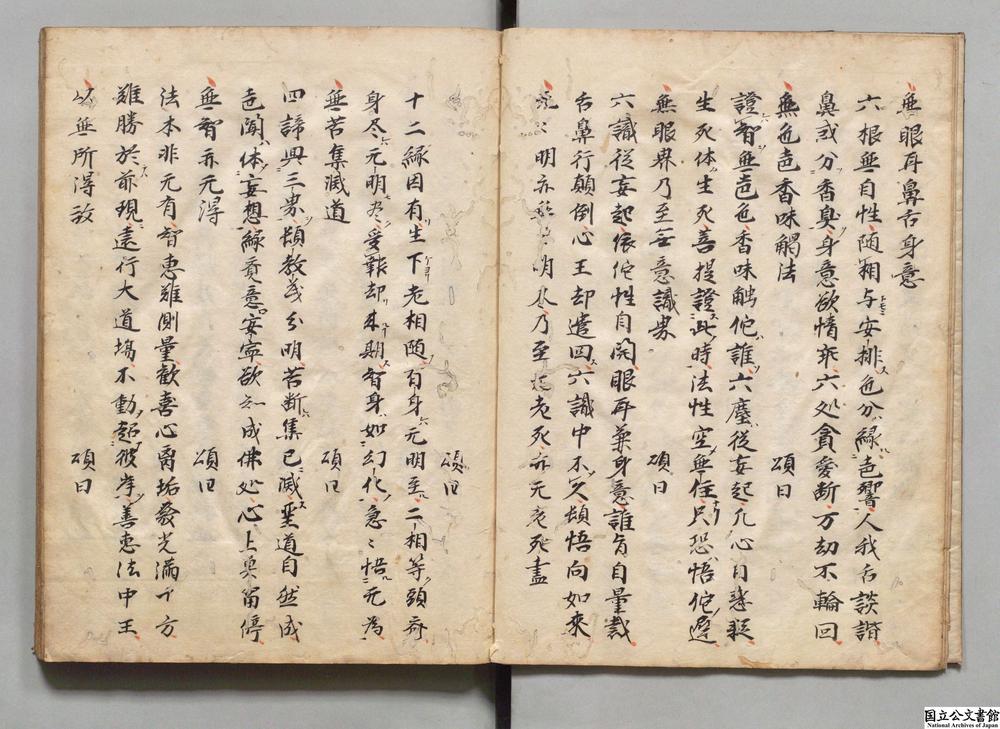 無眼耳鼻舌身意
六根無自性随相与安排色分緣声響人我舌詼諧
鼻或分香臭身意欲情乖六処貪愛断万劫不輪回
無色声香味觸法 頌曰
證智無声色香味触佗誰六塵従妄起凢心自惑疑
生死休生死菩提證此時法性空無住只恐悟佗遅
無眼界乃至无意識界 頌曰
六識従妄起依佗性自開眼耳兼身意誰肯自量裁
舌鼻行顛倒心王却遣回六識中不久頓悟向如来
明亦 明尽乃至 老死亦元老死盡
頌曰
十二緣因有生下老相随有身元明至二相等頭斉
身尽元明尽受報却来期智身如幻化急〻悟元為
無苦集滅道 頌曰
四諦興三界頓教義分明苦断集已滅聖道自然成
声聞休妄想緣覚意安寧欲知成佛処心上莫留停
無智亦元得 頌曰
法本非元有智恵難測量歓喜心離垢發光満十方
難勝於前現遠行大道場不動超彼岸善恵法中王
以無所得故 頌曰
国立公文書館
National Archives of Japan